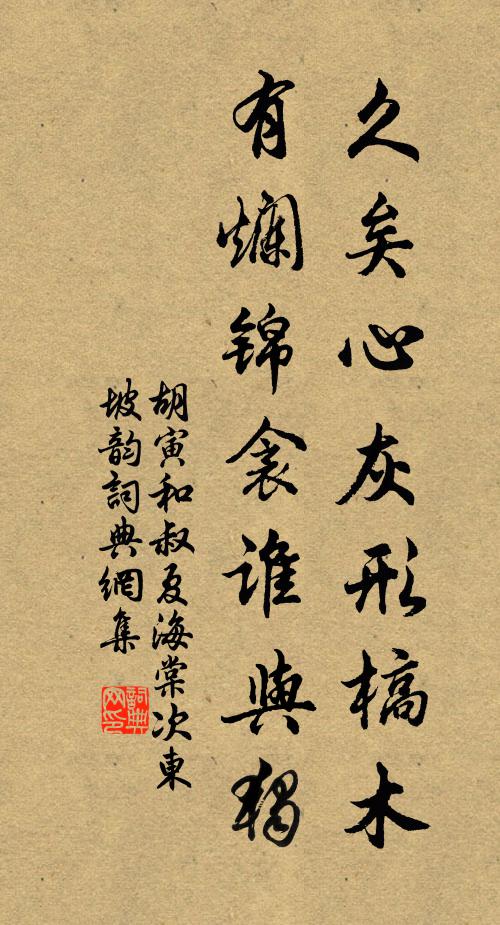 久矣心灰形槁木
有爛錦衾誰與獨
胡寅和叔夏海棠次東
坡韵詞典網集
詞典
网印